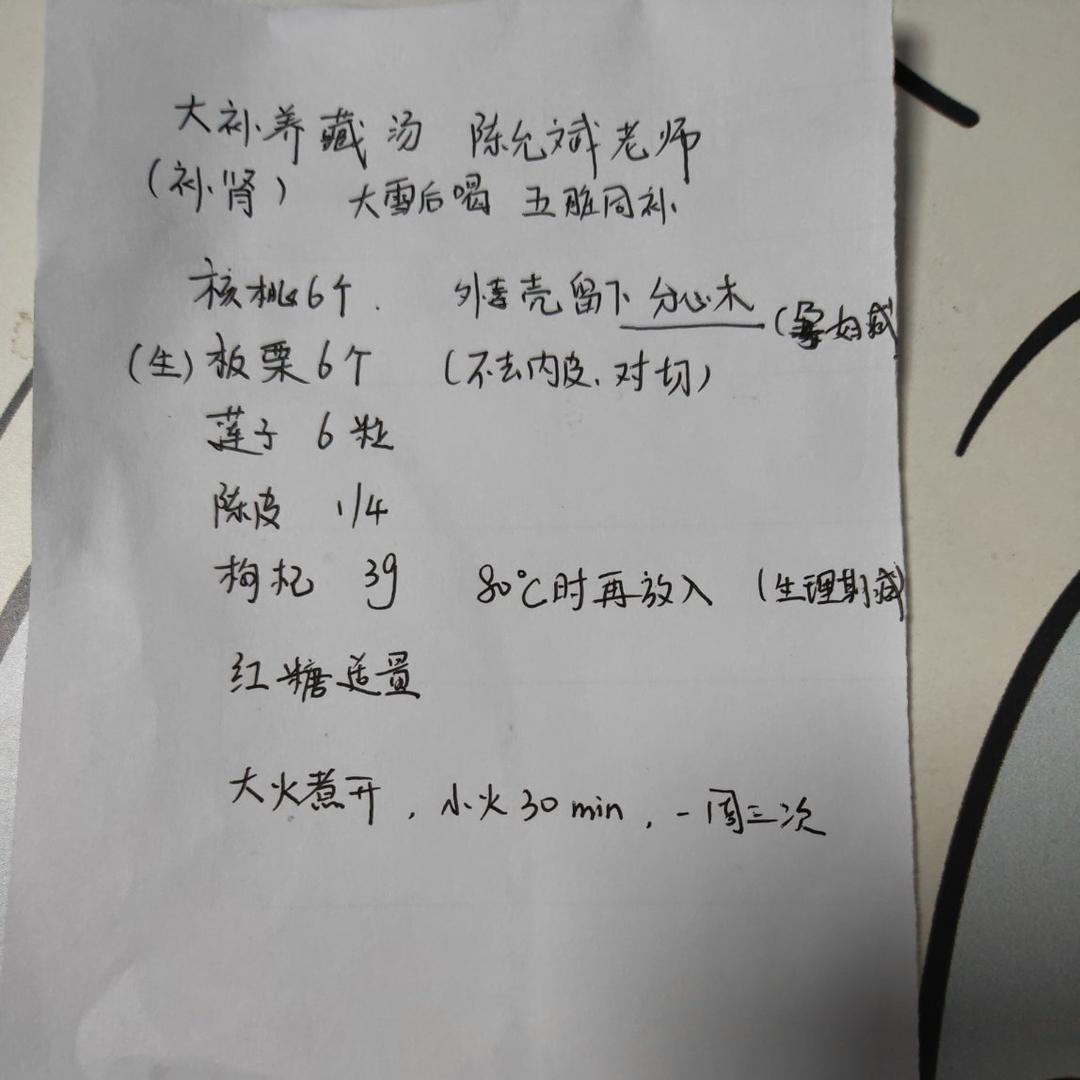 大补养藏汤 陈允斌老师
(补肾) 大雪后喝 五脏同补
核桃6个. 外壳留下分心木 (孕妇减
(生)板栗6个 (不去内皮、对切)
莲子 6粒
陈皮 1/4
枸杞 3g 80℃时再放入 (生理期减)
红糖适量
大火煮开,小火30min,一周三次